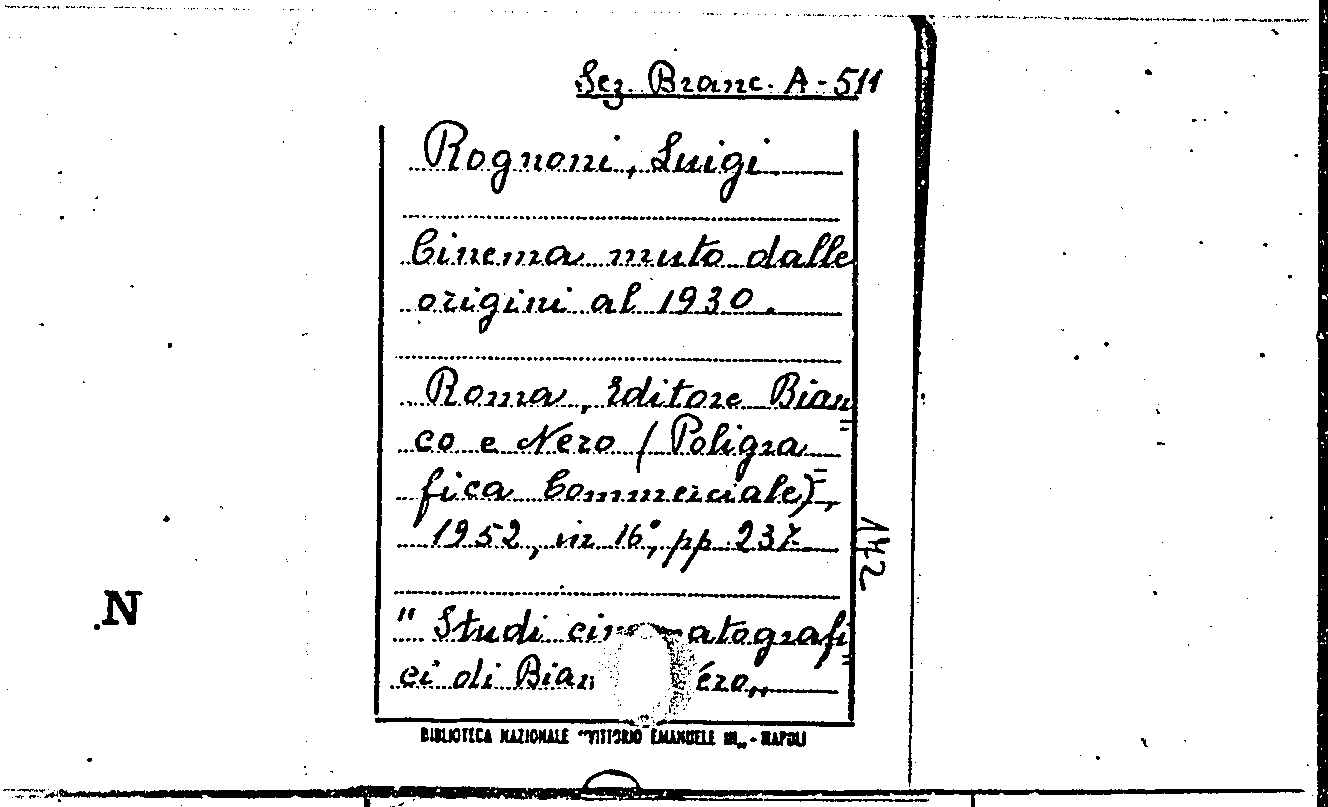 Sez. Branc. A-511
Rognoni, Luigi
Cinema muto dalle
origini al 1930.
Roma, Editore Bian=
co e Nero (Poligra
fica Commerciale),
1952, in 16°, pp. 237
142
"Studi cinematografi=
ci di Bian ero„
N
BIBLIOTECA NAZIONALE "VITTORIO EMANUELE III„ - NAPOLI